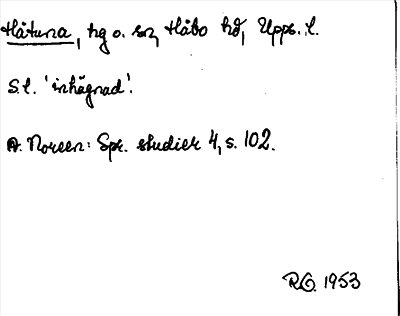 Håtuna, hg o. sn, Håbo hd, Upps. l.
S.l. 'inhägnad'.
A. Noreen: Spr. studier 4, s. 102.
R.O. 1953